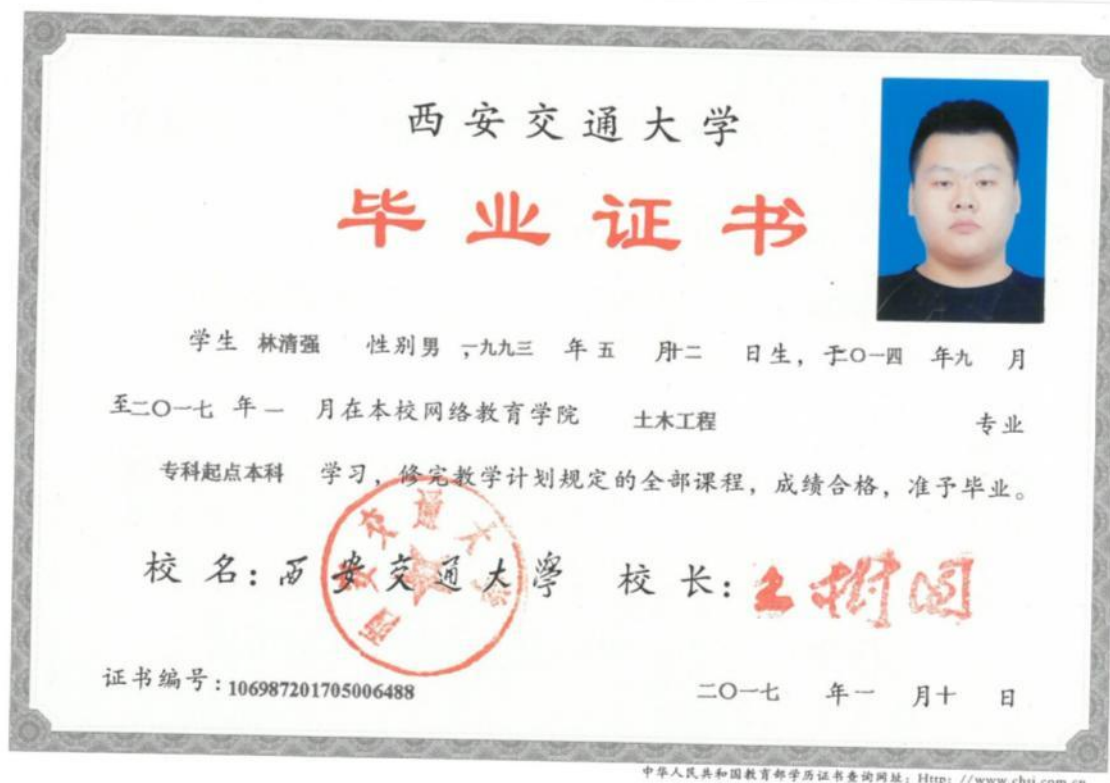 西安交通大学
毕业证书
学生 林清强 性别男，一九九三 年五 月十二 日生，于二〇一四 年九 月
至二〇一七 年一 月在本校网络教育学院 土木工程 专业
专科起点本科 学习，修完教学计划规定的全部课程，成绩合格，准予毕业。
校 名：西安交通大學 校 长：王树国
西安交通大学
证书编号：106987201705006488 二〇一七 年一 月十 日
中华人民共和国教育部学历证书查询网址：Http：//www.chsi.com.cn